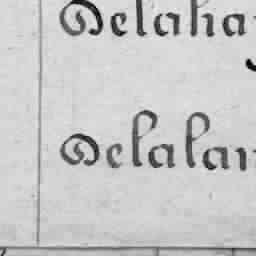 Delaha
Delalan